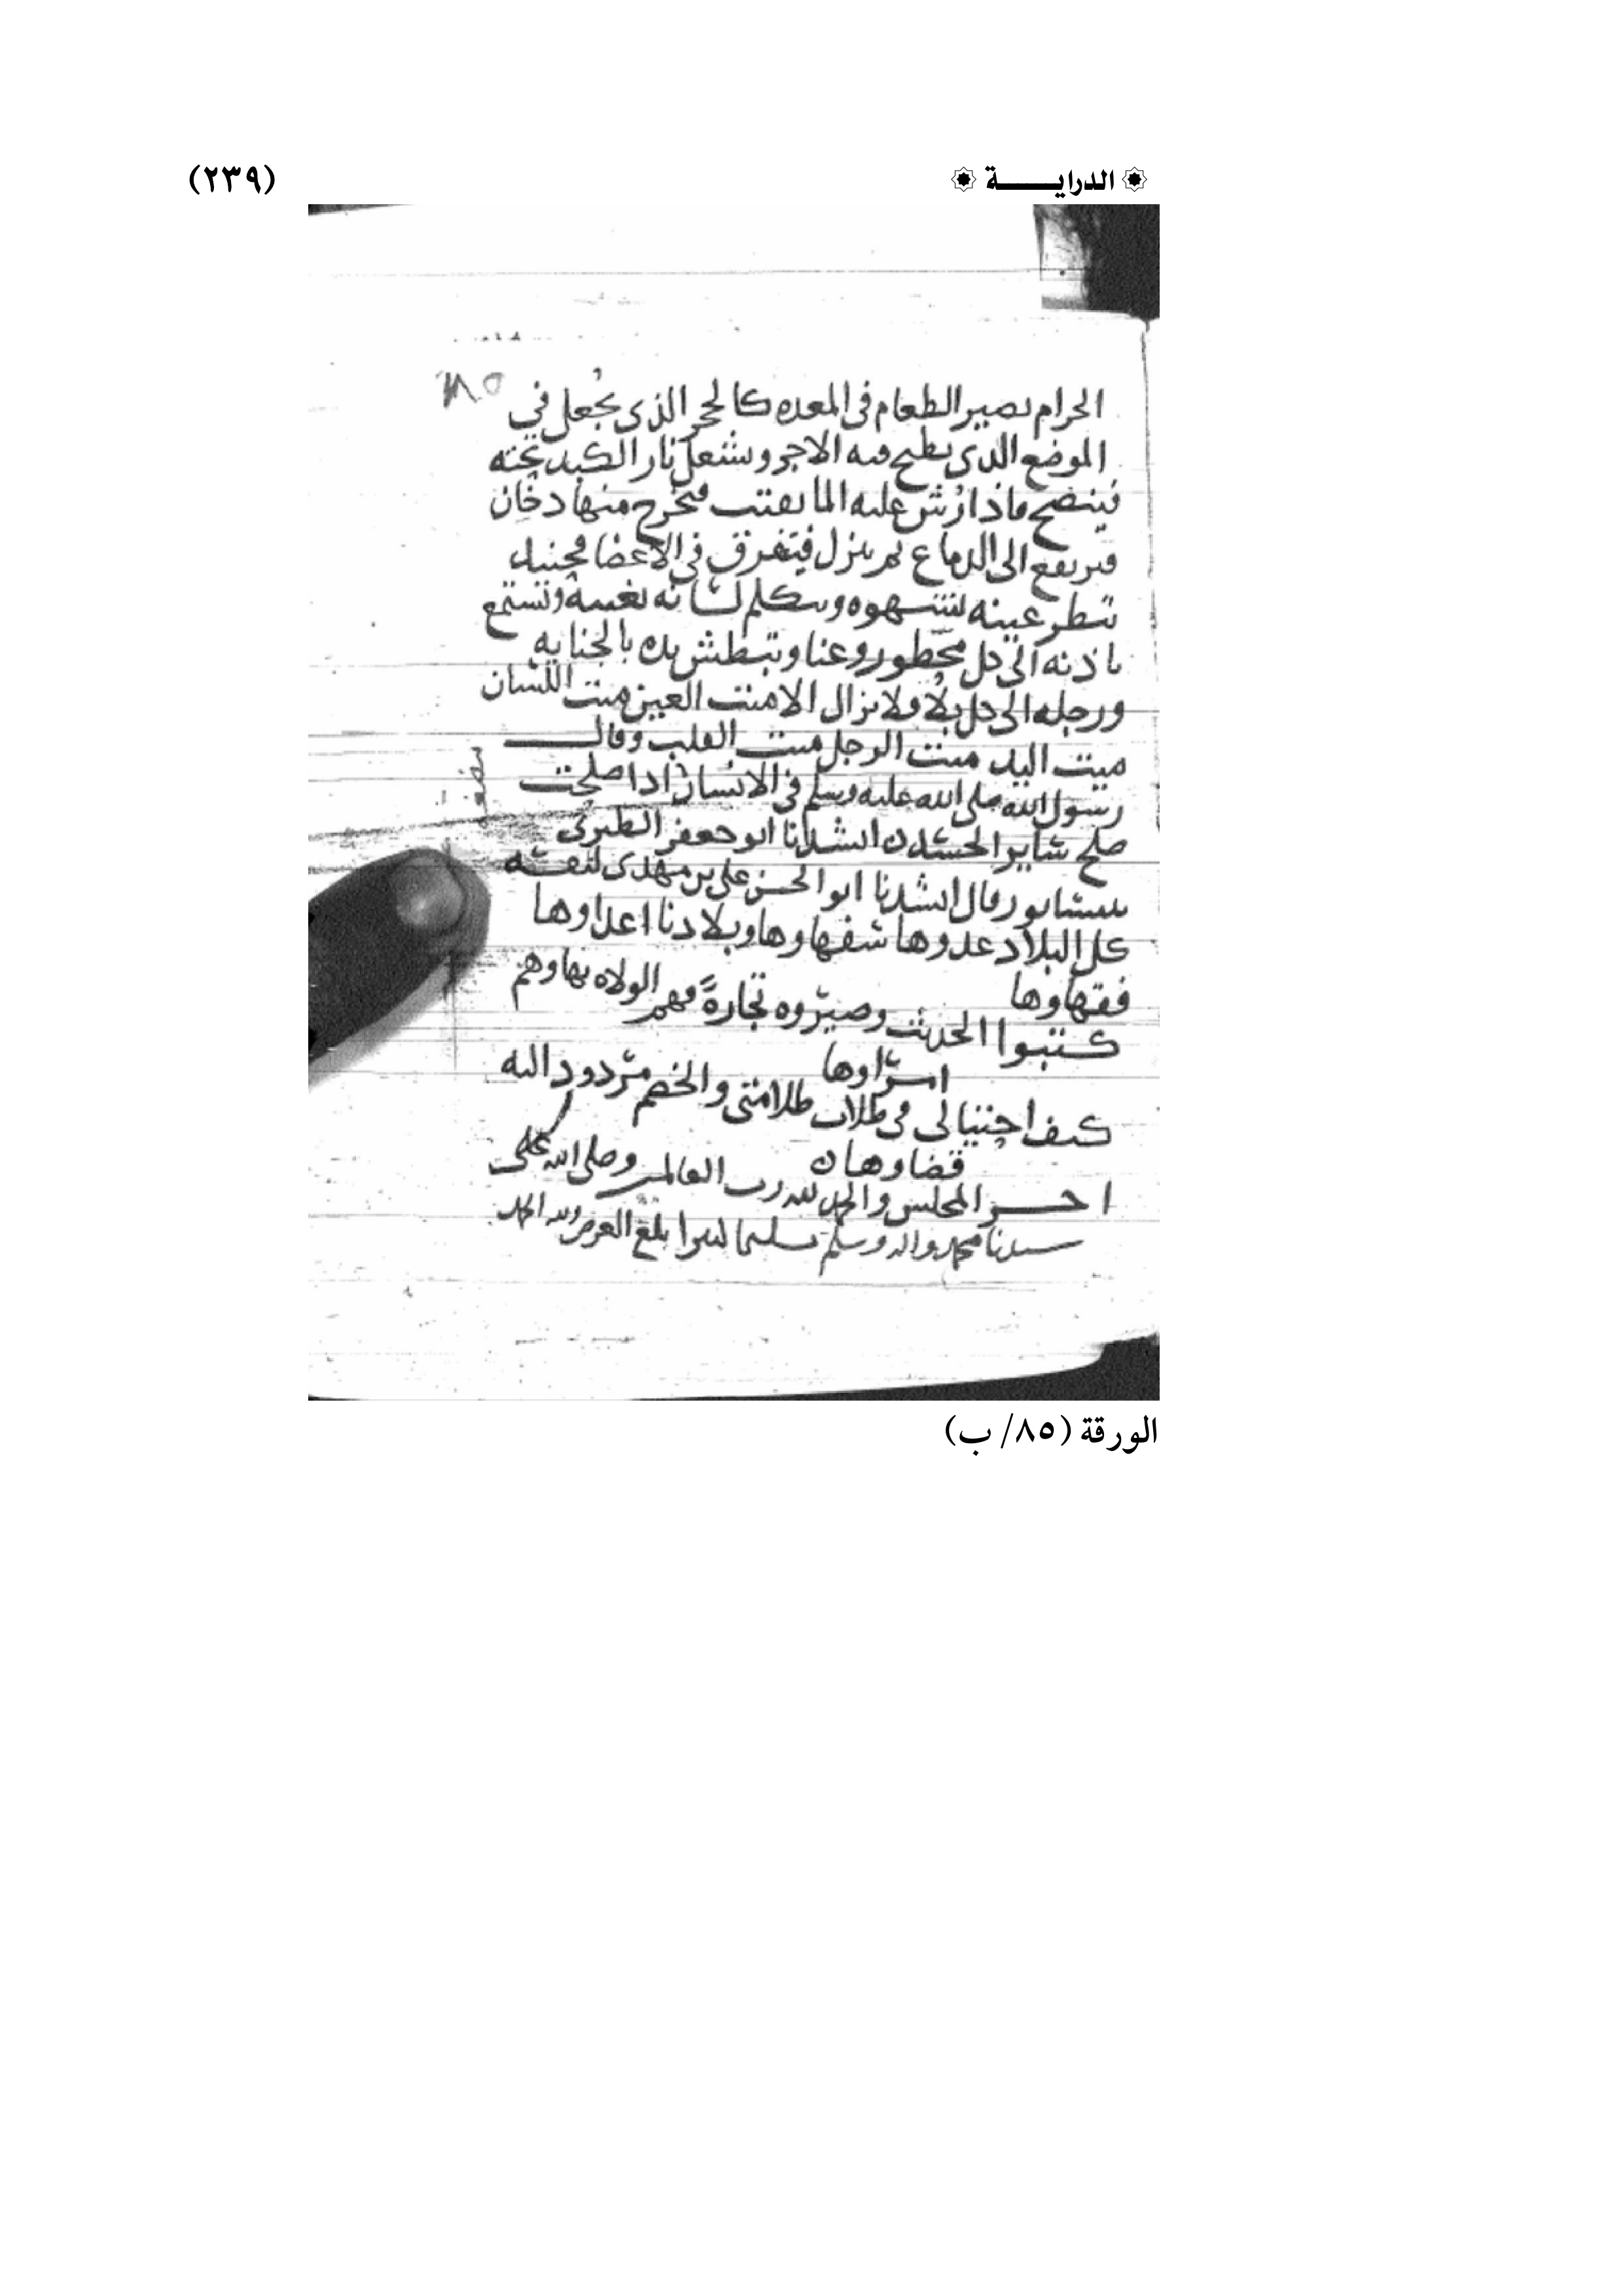 الدرايـــــة (٢٣٩)
٨٥
الحرام يصير الطعام فى المعده كالحجر الذى يجعل فى
الموضع الذى يطبح فيه الاجر وتشعل نار الكبد تحته
فينضج فاذا رش عليه الما يفتت فيخرج منها دخان
فيرتفع الى الدماغ ثم ينزل فيتفرق فى الاعضا فحينيذ
تنظر عينه لشهوه ويتكلم لسانه بغيبة وتستمع
باذنه الى كل محظور وغنا وتبطش يده بالجنايه
ورجله الى كل بلا ولا يزال الا ميت العين ميت اللسان
ميت اليد ميت الرجل ميت القلب وقال
رسول الله صلى الله عليه وسلم فى الانسان اذا صلحت
صلح ساير الجسد ن انشدنا ابو جعفر الطبرى
بنيسابور قال انشدنا ابو الحسن على بن مهدى لنفسه
كل البلاد عدوها سفهاوها وبلادنا اعداوها
فقهاوها
كتبوا الحديث وصيروه تجارةً فهم الولاه بها وهم
اسراوها
كيف احتيالى فى طلاب ظلامتى والخصم مردود اليه
قضاوها ن
اخـــر المجلس والحمد لله رب العالمين وصلى الله على
سيدنا محمد واله وسلم تسليما كثيرا بلغ العرض ولله الحمد
الورقة (٨٥/ ب)